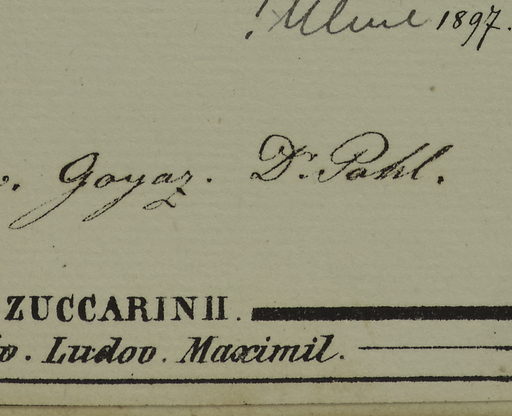 1897.
Goyaz. Dr. Pohl.
ZUCCARINII.
Ludov. Maximil.